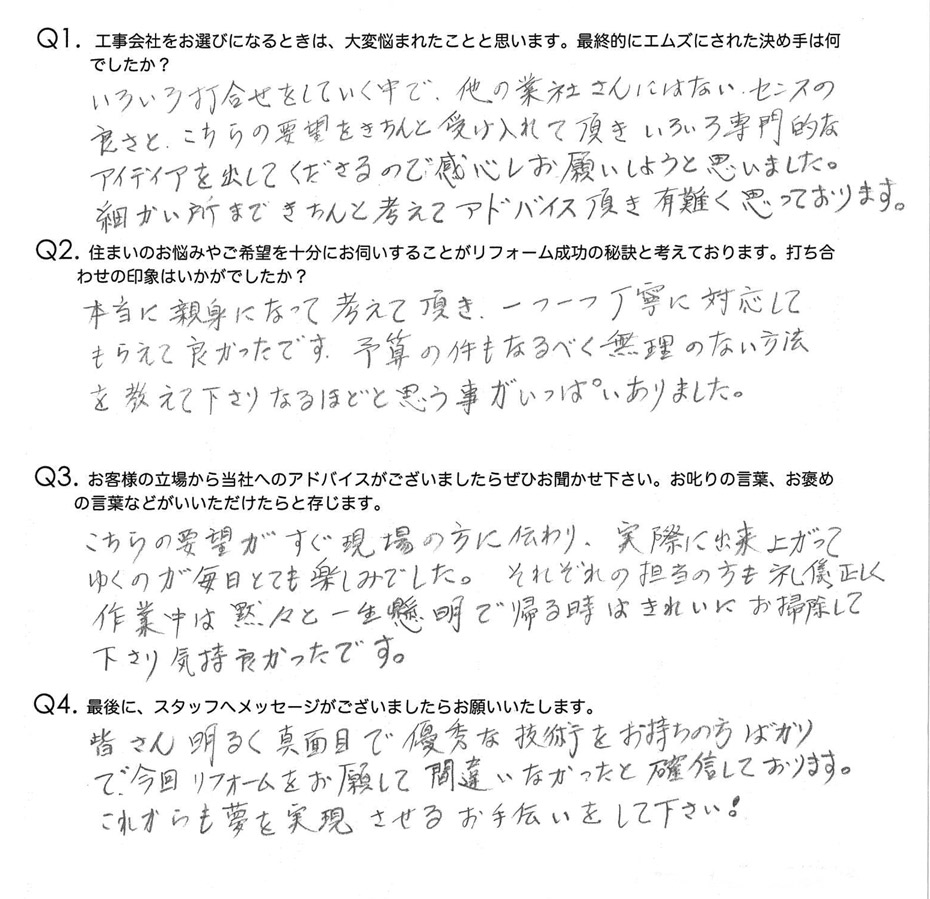 Q1. 工事会社をお選びになるときは、大変悩まれたことと思います。最終的にエムズにされた決め手は何
でしたか？
いろいろ打合せをしていく中で、他の業社さんにはない、センスの
良さと、こちらの要望をきちんと受け入れて頂きいろいろ専門的な
アイデイアを出してくださるので感心しお願いしようと思いました。
細かい所まできちんと考えてアドバイス頂き有難く思っております。
Q2. 住まいのお悩みやご希望を十分にお伺いすることがリフォーム成功の秘訣と考えております。打ち合
わせの印象はいかがでしたか？
本当に親身になって考えて頂き、一つ一つ丁寧に対応して
もらえて良かったです。予算の件もなるべく無理のない方法
を教えて下さりなるほどと思う事がいっぱいありました。
Q3. お客様の立場から当社へのアドバイスがございましたらぜひお聞かせ下さい。お叱りの言葉、お褒め
の言葉などがいいただけたらと存じます。
こちらの要望がすぐ現場の方に伝わり、実際に出来上がって
ゆくのが毎日とても楽しみでした。それぞれの担当の方も礼儀正しく
作業中は黙々と一生懸明で帰る時はきれいにお掃除して
下さり気持良かったです。
Q4. 最後に、スタッフへメッセージがございましたらお願いいたします。
皆さん明るく真面目で優秀な技術をお持ちの方ばかり
で、今回リフォームをお願して間違いなかったと確信しております。
これからも夢を実現させるお手伝いをして下さい！